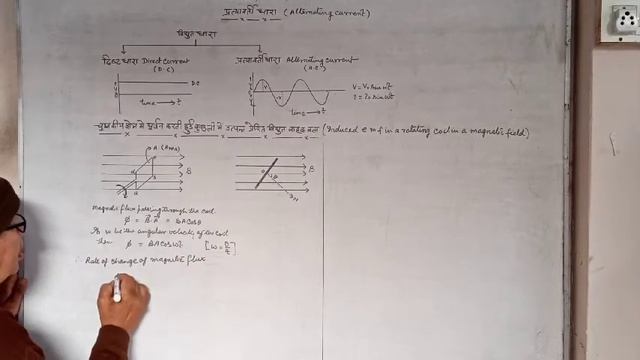 प्रत्यावर्ती धारा (Alternating current)
विद्युत धारा
दिष्ट धारा Direct Current
(D.C)
D.C
time → t
प्रत्यावर्ती धारा Alternating Current
(A.C)
V = V₀ sin ωt
I = I₀ sin ωt
time → t
चुम्बकीय क्षेत्र में घूर्णन करती हुई कुण्डली में उत्पन्न प्रेरित विद्युत वाहक बल (Induced emf in a rotating coil in a magnetic field)
A (Area)
B
B
Magnetic flux passing through the coil
ϕ = B⃗.A⃗ = BA cosθ
If ω be the angular velocity of the coil
then ϕ = BA cos ωt [ω = θ/t]
∴ Rate of change of magnetic flux